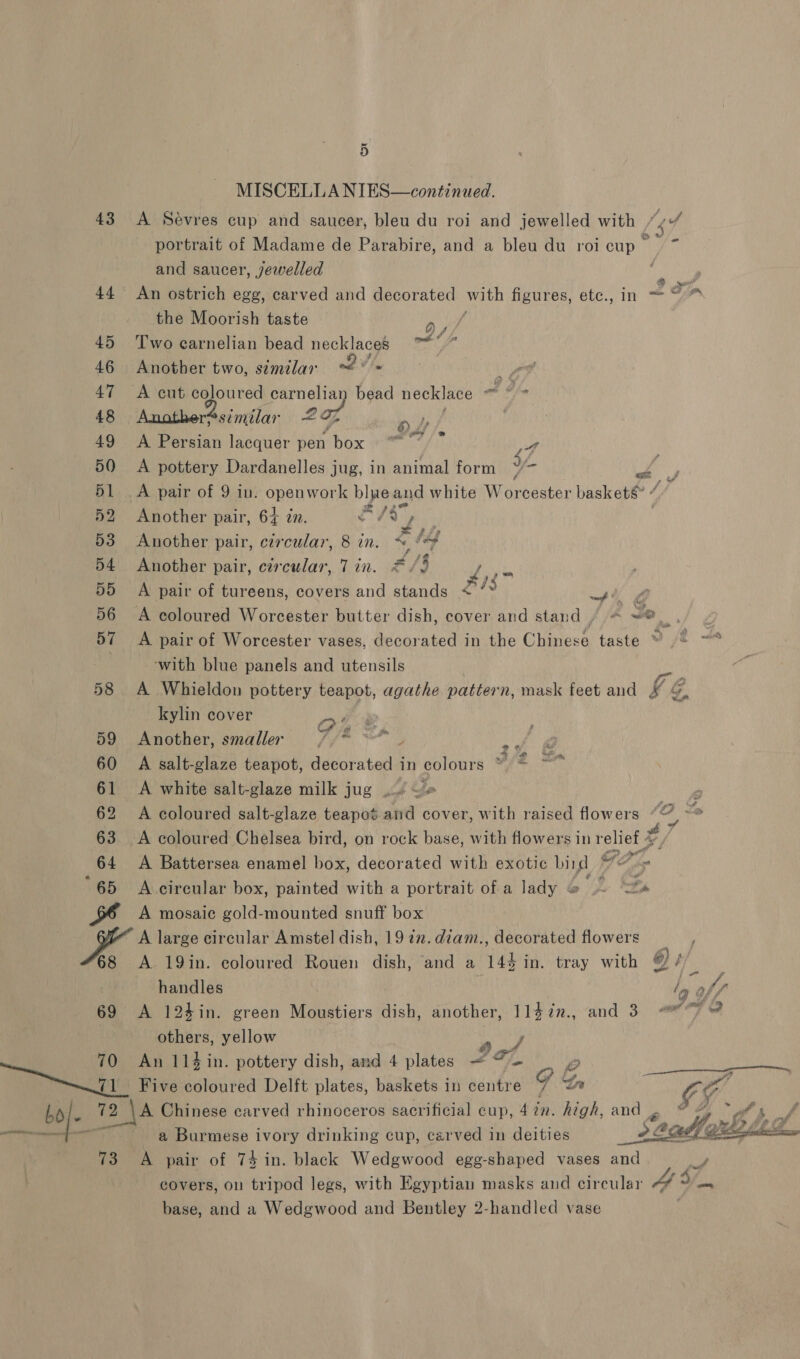 5
MISCELLANIES—continued.
43 A Sèvres cup and saucer, bleu du roi and jewelled with
portrait of Madame de Parabire, and a bleu du roi cup
and saucer, jewelled
44 An ostrich egg, carved and decorated with figures, etc., in
the Moorish taste
45 Two carnelian bead necklaces
46 Another two, similar
47 A cut coloured carnelian bead necklace
48 Another similar
49 A Persian lacquer pen box
50 A pottery Dardanelles jug, in animal form
51 A pair of 9 in. openwork blue and white Worcester baskets
52 Another pair, 6¼ in.
53 Another pair, circular, 8 in.
54 Another pair, circular, 7 in.
55 A pair of tureens, covers and stands
56 A coloured Worcester butter dish, cover and stand
57 A pair of Worcester vases, decorated in the Chinese taste
with blue panels and utensils
58 A Whieldon pottery teapot, agathe pattern, mask feet and
kylin cover
59 Another, smaller
60 A salt-glaze teapot, decorated in colours
61 A white salt-glaze milk jug
62 A coloured salt-glaze teapot and cover, with raised flowers
63 A coloured Chelsea bird, on rock base, with flowers in relief
64 A Battersea enamel box, decorated with exotic bird
65 A circular box, painted with a portrait of a lady
66 A mosaic gold-mounted snuff box
67 A large circular Amstel dish, 19 in. diam., decorated flowers
68 A 19in. coloured Rouen dish, and a 14½ in. tray with
handles
69 A 12½in. green Moustiers dish, another, 11½in., and 3
others, yellow
70 An 11½ in. pottery dish, and 4 plates
71 Five coloured Delft plates, baskets in centre
72 A Chinese carved rhinoceros sacrificial cup, 4 in. high, and
a Burmese ivory drinking cup, carved in deities
73 A pair of 7½ in. black Wedgwood egg-shaped vases and
covers, on tripod legs, with Egyptian masks and circular
base, and a Wedgwood and Bentley 2-handled vase